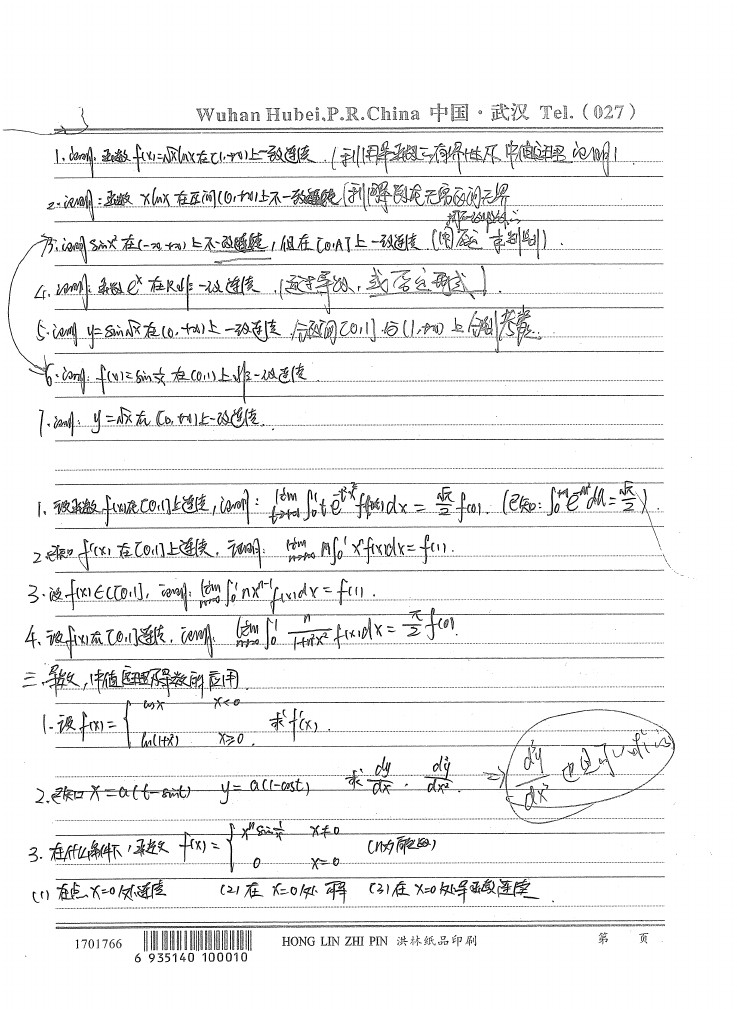 Wuhan Hubei,P.R.China 中国·武汉 Tel.(027)
1.证明:函数 f(x)=√x lnx 在[1,+∞)上一致连续 (利用导函数有界性及中值定理证明)
2.证明:函数 xlnx 在区间(0,+∞)上不一致连续(利用导函数在无穷区间无界
3.证明 sinx² 在(-∞,+∞)上不一致连续,但在[0,A]上一致连续
4.证明:函数 eˣ 在R上非一致连续
5.证明 y=sin√x 在(0,+∞)上一致连续 分区间[0,1]与(1,+∞)上分别考虑.
6.证明:f(x)=sin 1/x 在(0,1)上非一致连续
7.证明:y=√x 在[0,+∞)上一致连续.
1.设函数f(x)在[0,1]上连续,证明: lim t→+∞ ∫₀¹ t e^(-t²x²) f(x)dx = √π/2 f(0). (已知:∫₀^(+∞) e^(-u²)du=√π/2).
2.已知 f(x) 在[0,1]上连续,证明: lim n→∞ n∫₀¹ xⁿf(x)dx=f(1).
3.设f(x)∈C[0,1],证明: lim n→∞ ∫₀¹ nxⁿ⁻¹f(x)dx=f(1).
4.设f(x)在[0,1]连续,证明: lim n→∞ ∫₀¹ n/(1+n²x²) f(x)dx = π/2 f(0).
三.导数,中值定理及导数的应用
1.设 f(x)= { x<0
ln(1+x) x≥0. 求f'(x).
2.已知 x=a(t-sint) y=a(1-cost) 求 dy/dx , d²y/dx².
3.在什么条件下,函数 f(x)= { xⁿsin 1/x x≠0
0 x=0
(1)在点x=0处连续 (2)在 x=0处可导 (3)在x=0处导函数连续
1701766
6 935140 100010
HONG LIN ZHI PIN 洪林纸品印刷
第 页